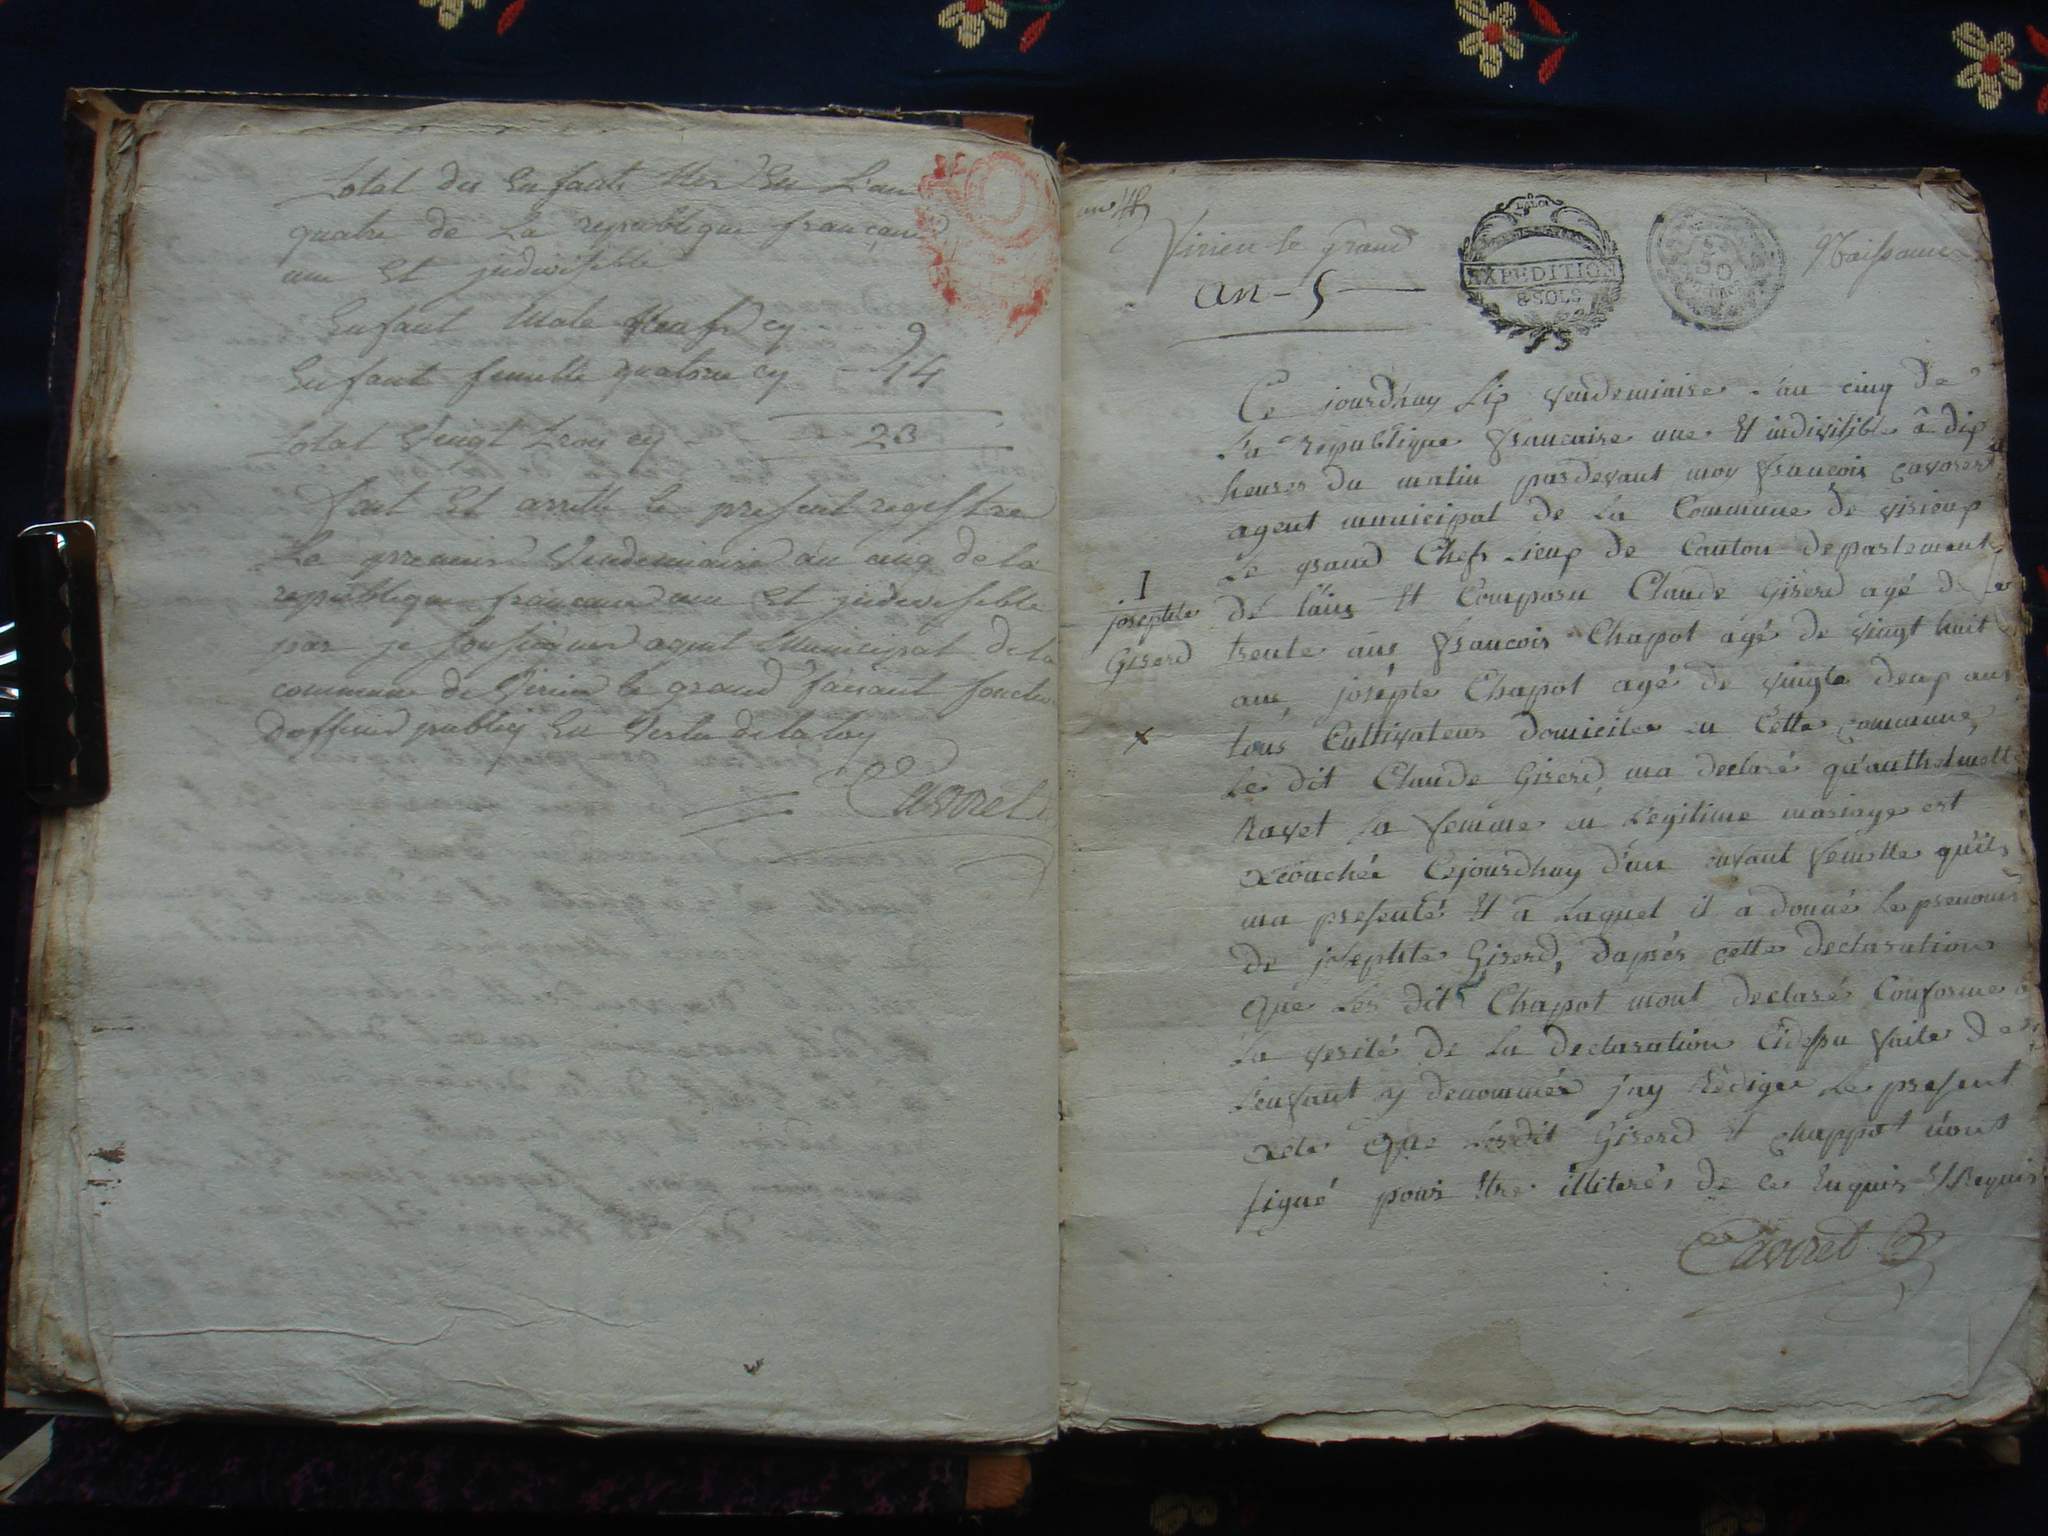 Total des Enfants Nés En L'an
quatre de La republique françaisse
une Et jndivisible
Enfant Male Neuf cy - 9
Enfant femelle quatorze cy - 14
total Vingt Trois cy - 23
fait Et arretté le present registre
Le premier Vendemiaire an cinq de la
republique françaisse une Et jndivisible
par je soussigné agent Municipal de la
commune de Virieu le grand faisant fonction
d'officier public En Vertu de la loy
Cavoret
Virieu le Grand
EXPEDITION
8 SOLS
50
Naissance
an - 5 -
Ce jourdhuy six vendemiaire an cinq de
La republique francaise une Et indivisible à dix
heures du matin pardevant moy francois cavoret
agent municipal de La Commune de virieux
Le grand Chef Lieux de Canton departement
1
josephte
Giserd
de lains Et Comparu Claude Giserd agé de
trente ans francois Chapot agé de vingt huit
ans, josepte Chapot agé de vingte deux ans
tous Cultivateurs domicilés en Cette commune,
x
Le dit Claude Giserd, ma declaré qu'anthelmette
Ravet La femme en Legitime mariage est
acouchée Cejourdhuy d'un enfant femelle quil
ma presenté Et a Laquel il a donné Le prenoms
de josephte Giserd, daprès cette declaration
que Les dits Chapot mont declaré Conforme a
La verité de La declaration Cidessu faite de
L'enfant y denommée j'ay Rédiger Le present
acte que Lesdit Giserd et chappot n'ont
signé pour Etre illiterés de ce Enquis Et Requis
Cavoret